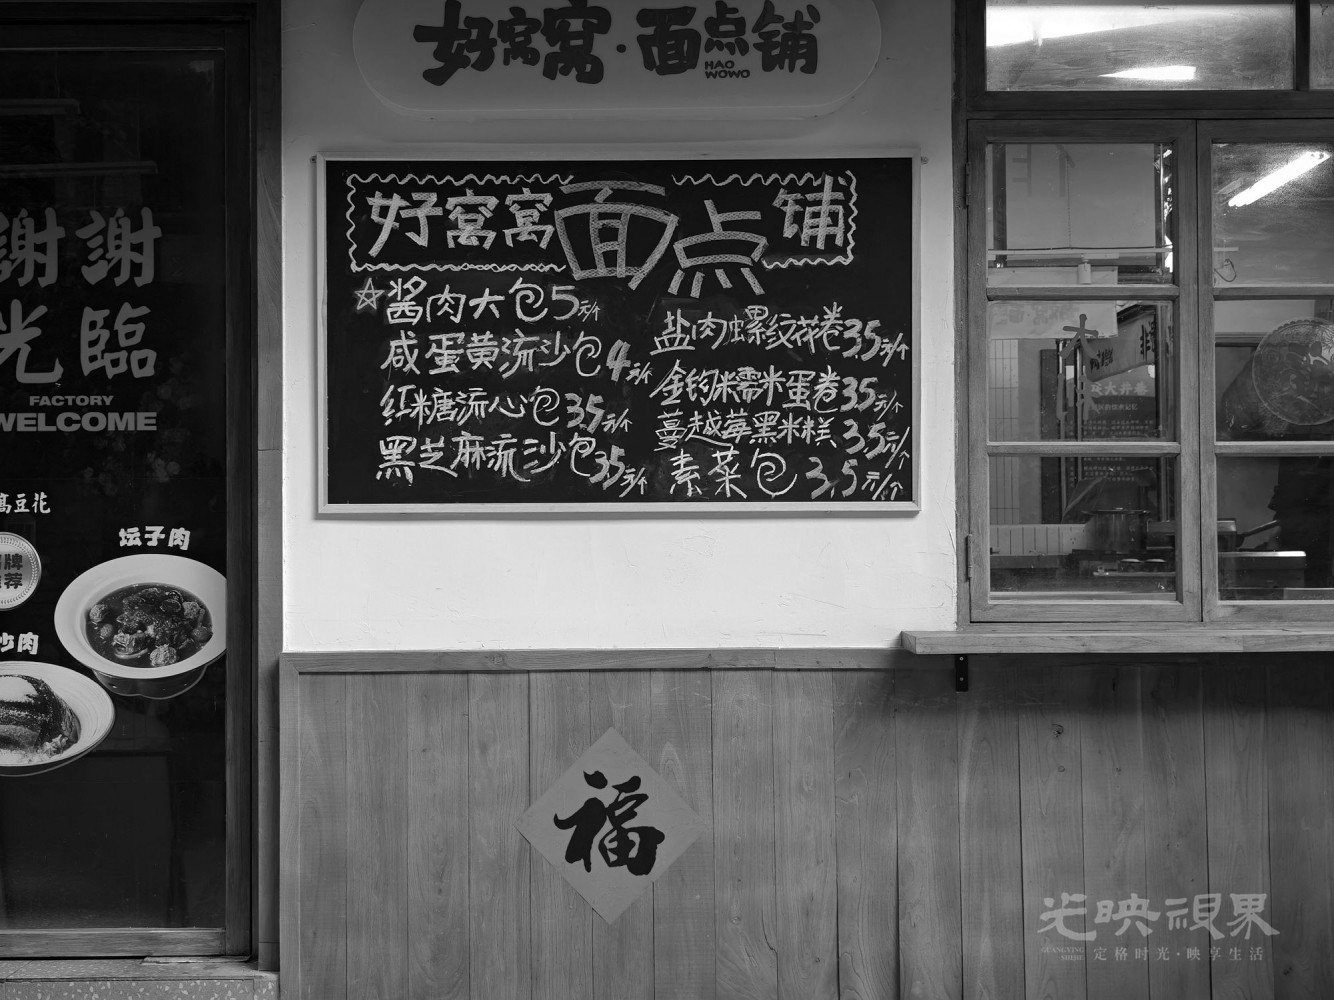 好窝窝·面点铺
HAO
WOWO
好窝窝面点铺
☆酱肉大包5元/个
咸蛋黄流沙包4元/个
红糖流心包3.5元/个
黑芝麻流沙包3.5元/个
盐肉螺纹花卷3.5元/个
金钩糯米蛋卷3.5元/个
蔓越莓黑米糕3.5元/个
素菜包3.5元/个
謝謝
光臨
FACTORY
WELCOME
豆花
坛子肉
肉
福
光映视界
GUANGYING
SHIJIE
定格时光·映享生活